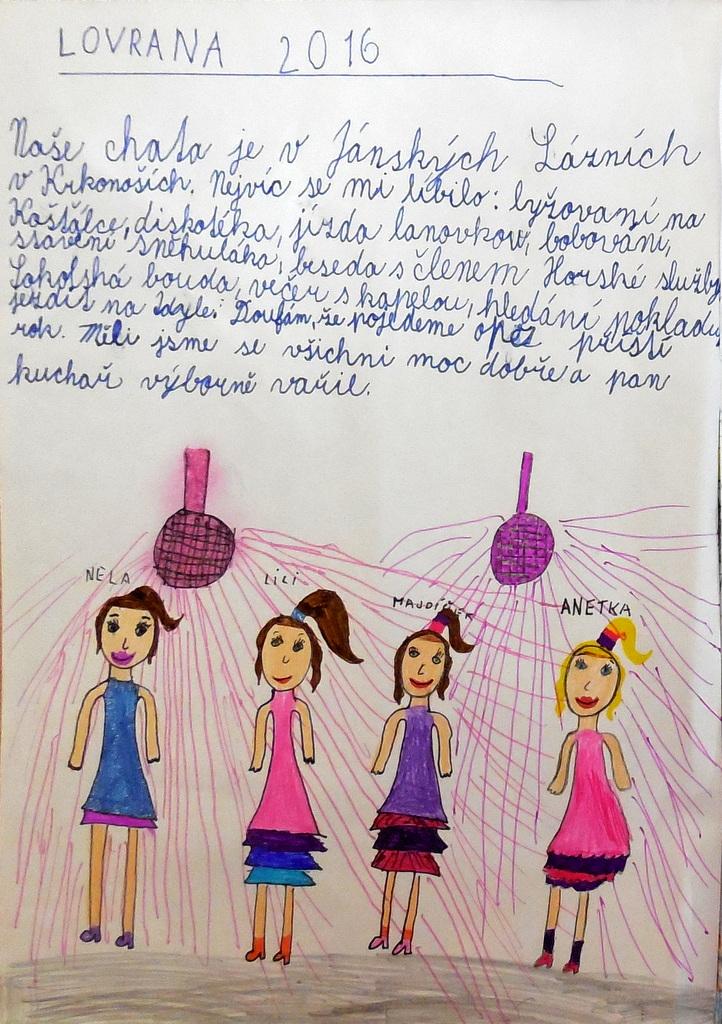 LOVRANA 2016
Naše chata je v Jánských Lázních
v Krkonoších. Nejvíc se mi líbilo: lyžovaní na
Košťálce, diskotéka, jízda lanovkou, bobování,
stavění sněhuláka, beseda s členem Horské služby,
Sokolská bouda, večer s kapelou, hledání pokladu,
jezdit na Idyle. Doufám, že pojedeme opět příští
rok. Měli jsme se všichni moc dobře a pan
kuchař výborně vařil.
NELA LILI MAJDÍČEK ANETKA